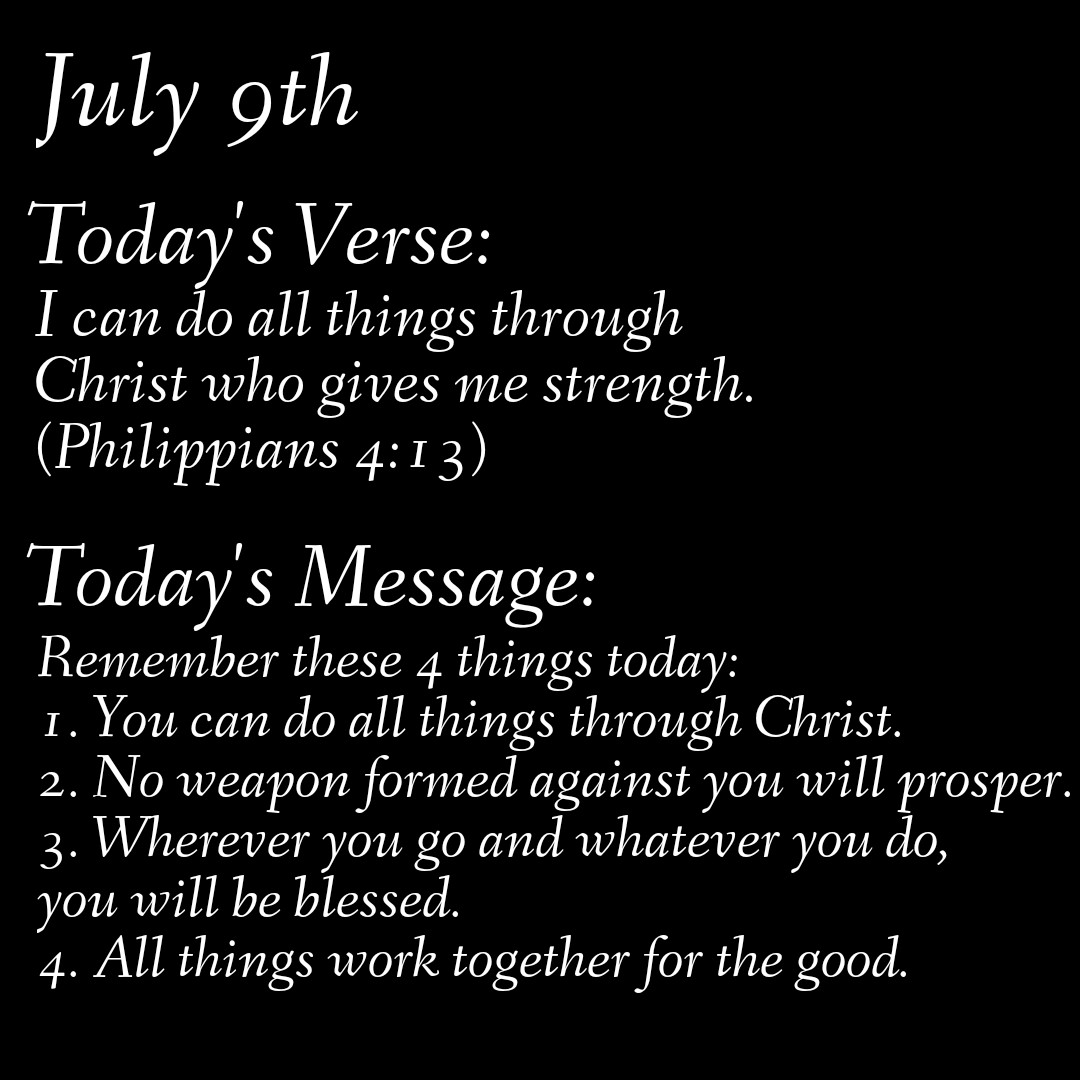 July 9th
Today's Verse:
I can do all things through
Christ who gives me strength.
(Philippians 4:13)
Today's Message:
Remember these 4 things today:
1. You can do all things through Christ.
2. No weapon formed against you will prosper.
3. Wherever you go and whatever you do,
you will be blessed.
4. All things work together for the good.